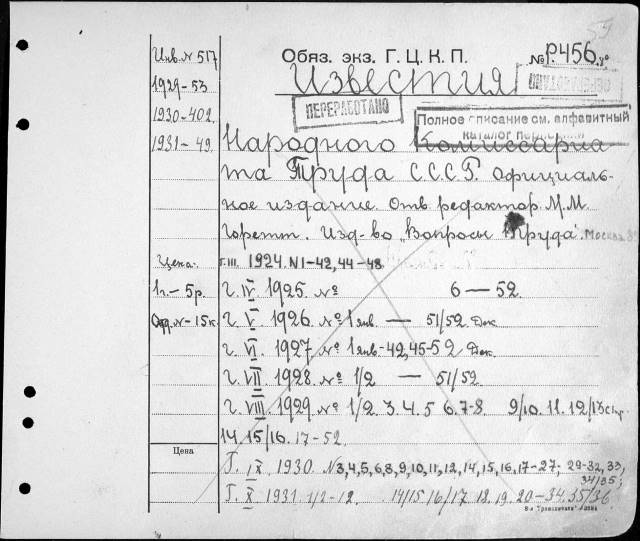 59
Инв. № 517
Обяз. экз. Г. Ц. К. П.
№ Р.456.8°
1929-53
Известия
1930-402.
ПЕРЕРАБОТАНО
Полное описание см. алфавитный
каталог
1931-49.
Народного Комиссариа
та Труда С.С.С.Р. Официаль-
ное издание. Отв. редактор М.М.
Изд-во „Вопросы Труда". Москва 8°
Цена.
г. III. 1924. N1-42, 44-48.
1 г. - 5 р.
Г. IV. 1925. № 6 — 52.
Отд. № - 15 к.
Г. V. 1926. № 1 янв. — 51/52 Дек
Г. VI. 1927 № 1 янв. - 42, 45-52 Дек.
Г. VII 1928. № 1/2 — 51/52.
Г. VIII. 1929. № 1/2. 3. 4. 5 6. 7-8 9/10. 11. 12/13
14. 15/16. 17-52.
Цена
Г. IX. 1930. N3,4,5,6,8,9,10,11,12,14,15,16,17-27; 29-32, 33,
34/35;
Г. X 1931. 1/2-12. 14/15 16/17 18. 19. 20-34. 35/36